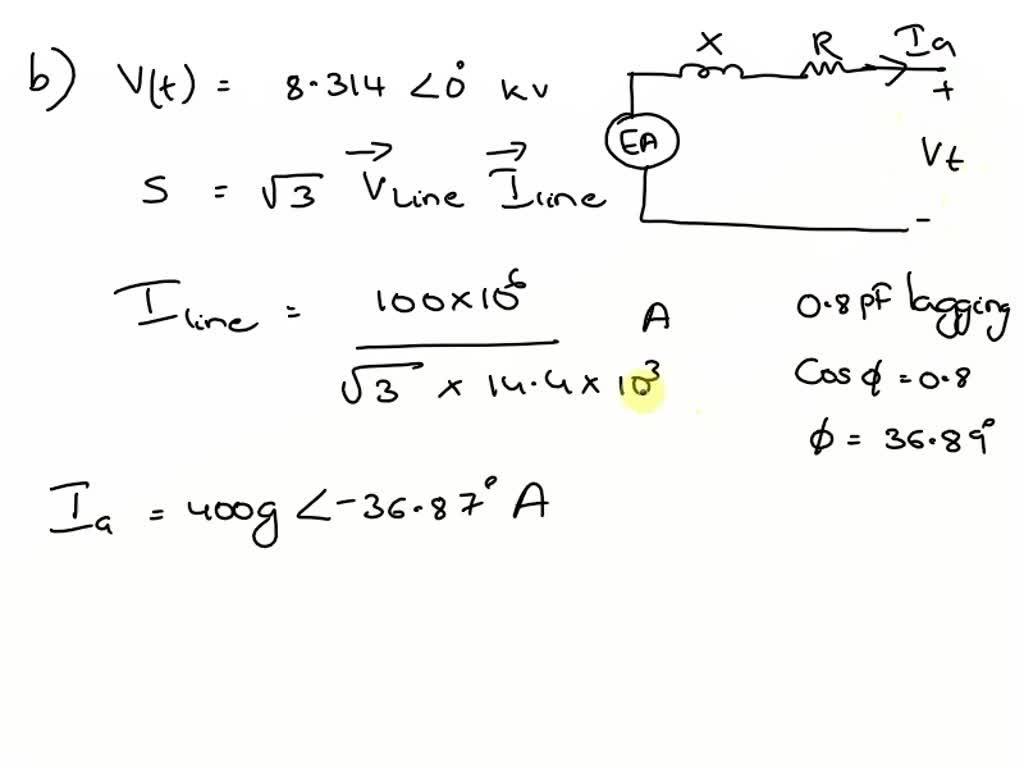 b) V(t) = 8.314 <0° kV
S = √3 V Line I Line
I line = 100×10^6 / √3 × 14.4 × 10^3 A
I a = 400g <-36.87° A
X R Ia
+
EA
Vt
-
0.8 pF lagging
Cos ϕ = 0.8
ϕ = 36.89°